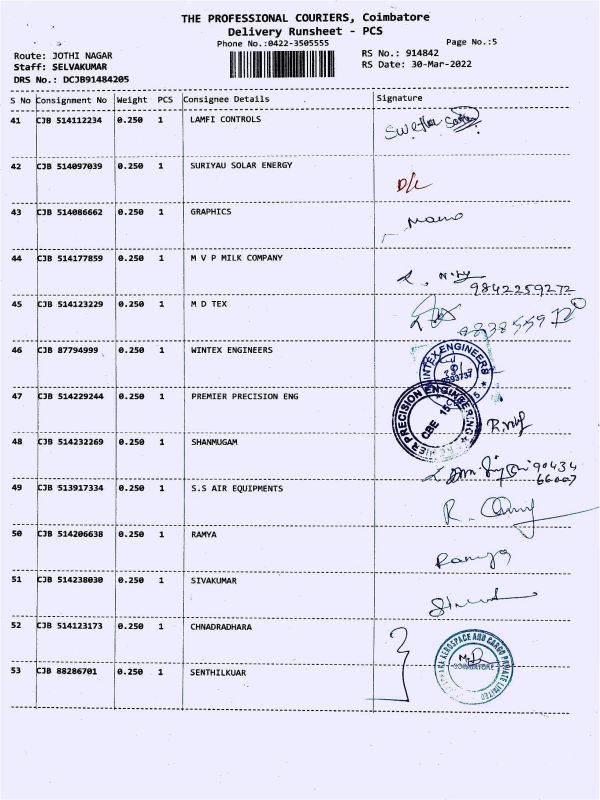 THE PROFESSIONAL COURIERS, Coimbatore
Delivery Runsheet - PCS
Phone No.:0422-3505555
Page No.:5
Route: JOTHI NAGAR
RS No.: 914842
Staff: SELVAKUMAR
RS Date: 30-Mar-2022
DRS No.: DCJB91484205
S No Consignment No Weight PCS Consignee Details Signature
41 CJB 514112234 0.250 1 LAMFI CONTROLS
42 CJB 514097039 0.250 1 SURIYAU SOLAR ENERGY
D/L
43 CJB 514086662 0.250 1 GRAPHICS
44 CJB 514177859 0.250 1 M V P MILK COMPANY
9842259272
45 CJB 514123229 0.250 1 M D TEX
46 CJB 87794999 0.250 1 WINTEX ENGINEERS
WINTEX ENGINEERS
47 CJB 514229244 0.250 1 PREMIER PRECISION ENG
PRECISION ENGINEERING
CBE
48 CJB 514232269 0.250 1 SHANMUGAM
90434
66007
49 CJB 513917334 0.250 1 S.S AIR EQUIPMENTS
50 CJB 514206638 0.250 1 RAMYA
Ramya
51 CJB 514238030 0.250 1 SIVAKUMAR
52 CJB 514123173 0.250 1 CHNADRADHARA
AEROSPACE AND CARGO PRIVATE LIMITED
COIMBATORE
53 CJB 88286701 0.250 1 SENTHILKUAR